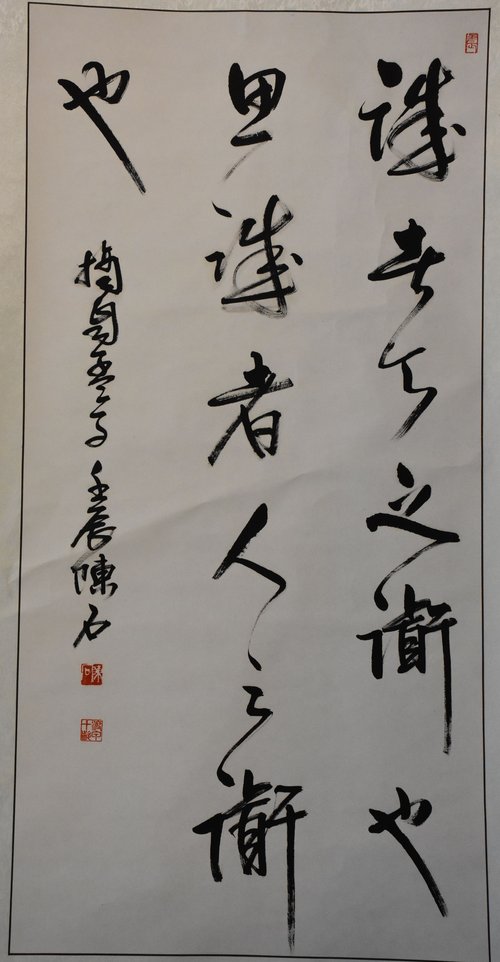 誠者天之衜也
思誠者人之衜
也
摘自孟子 壬辰 陳石
陳石